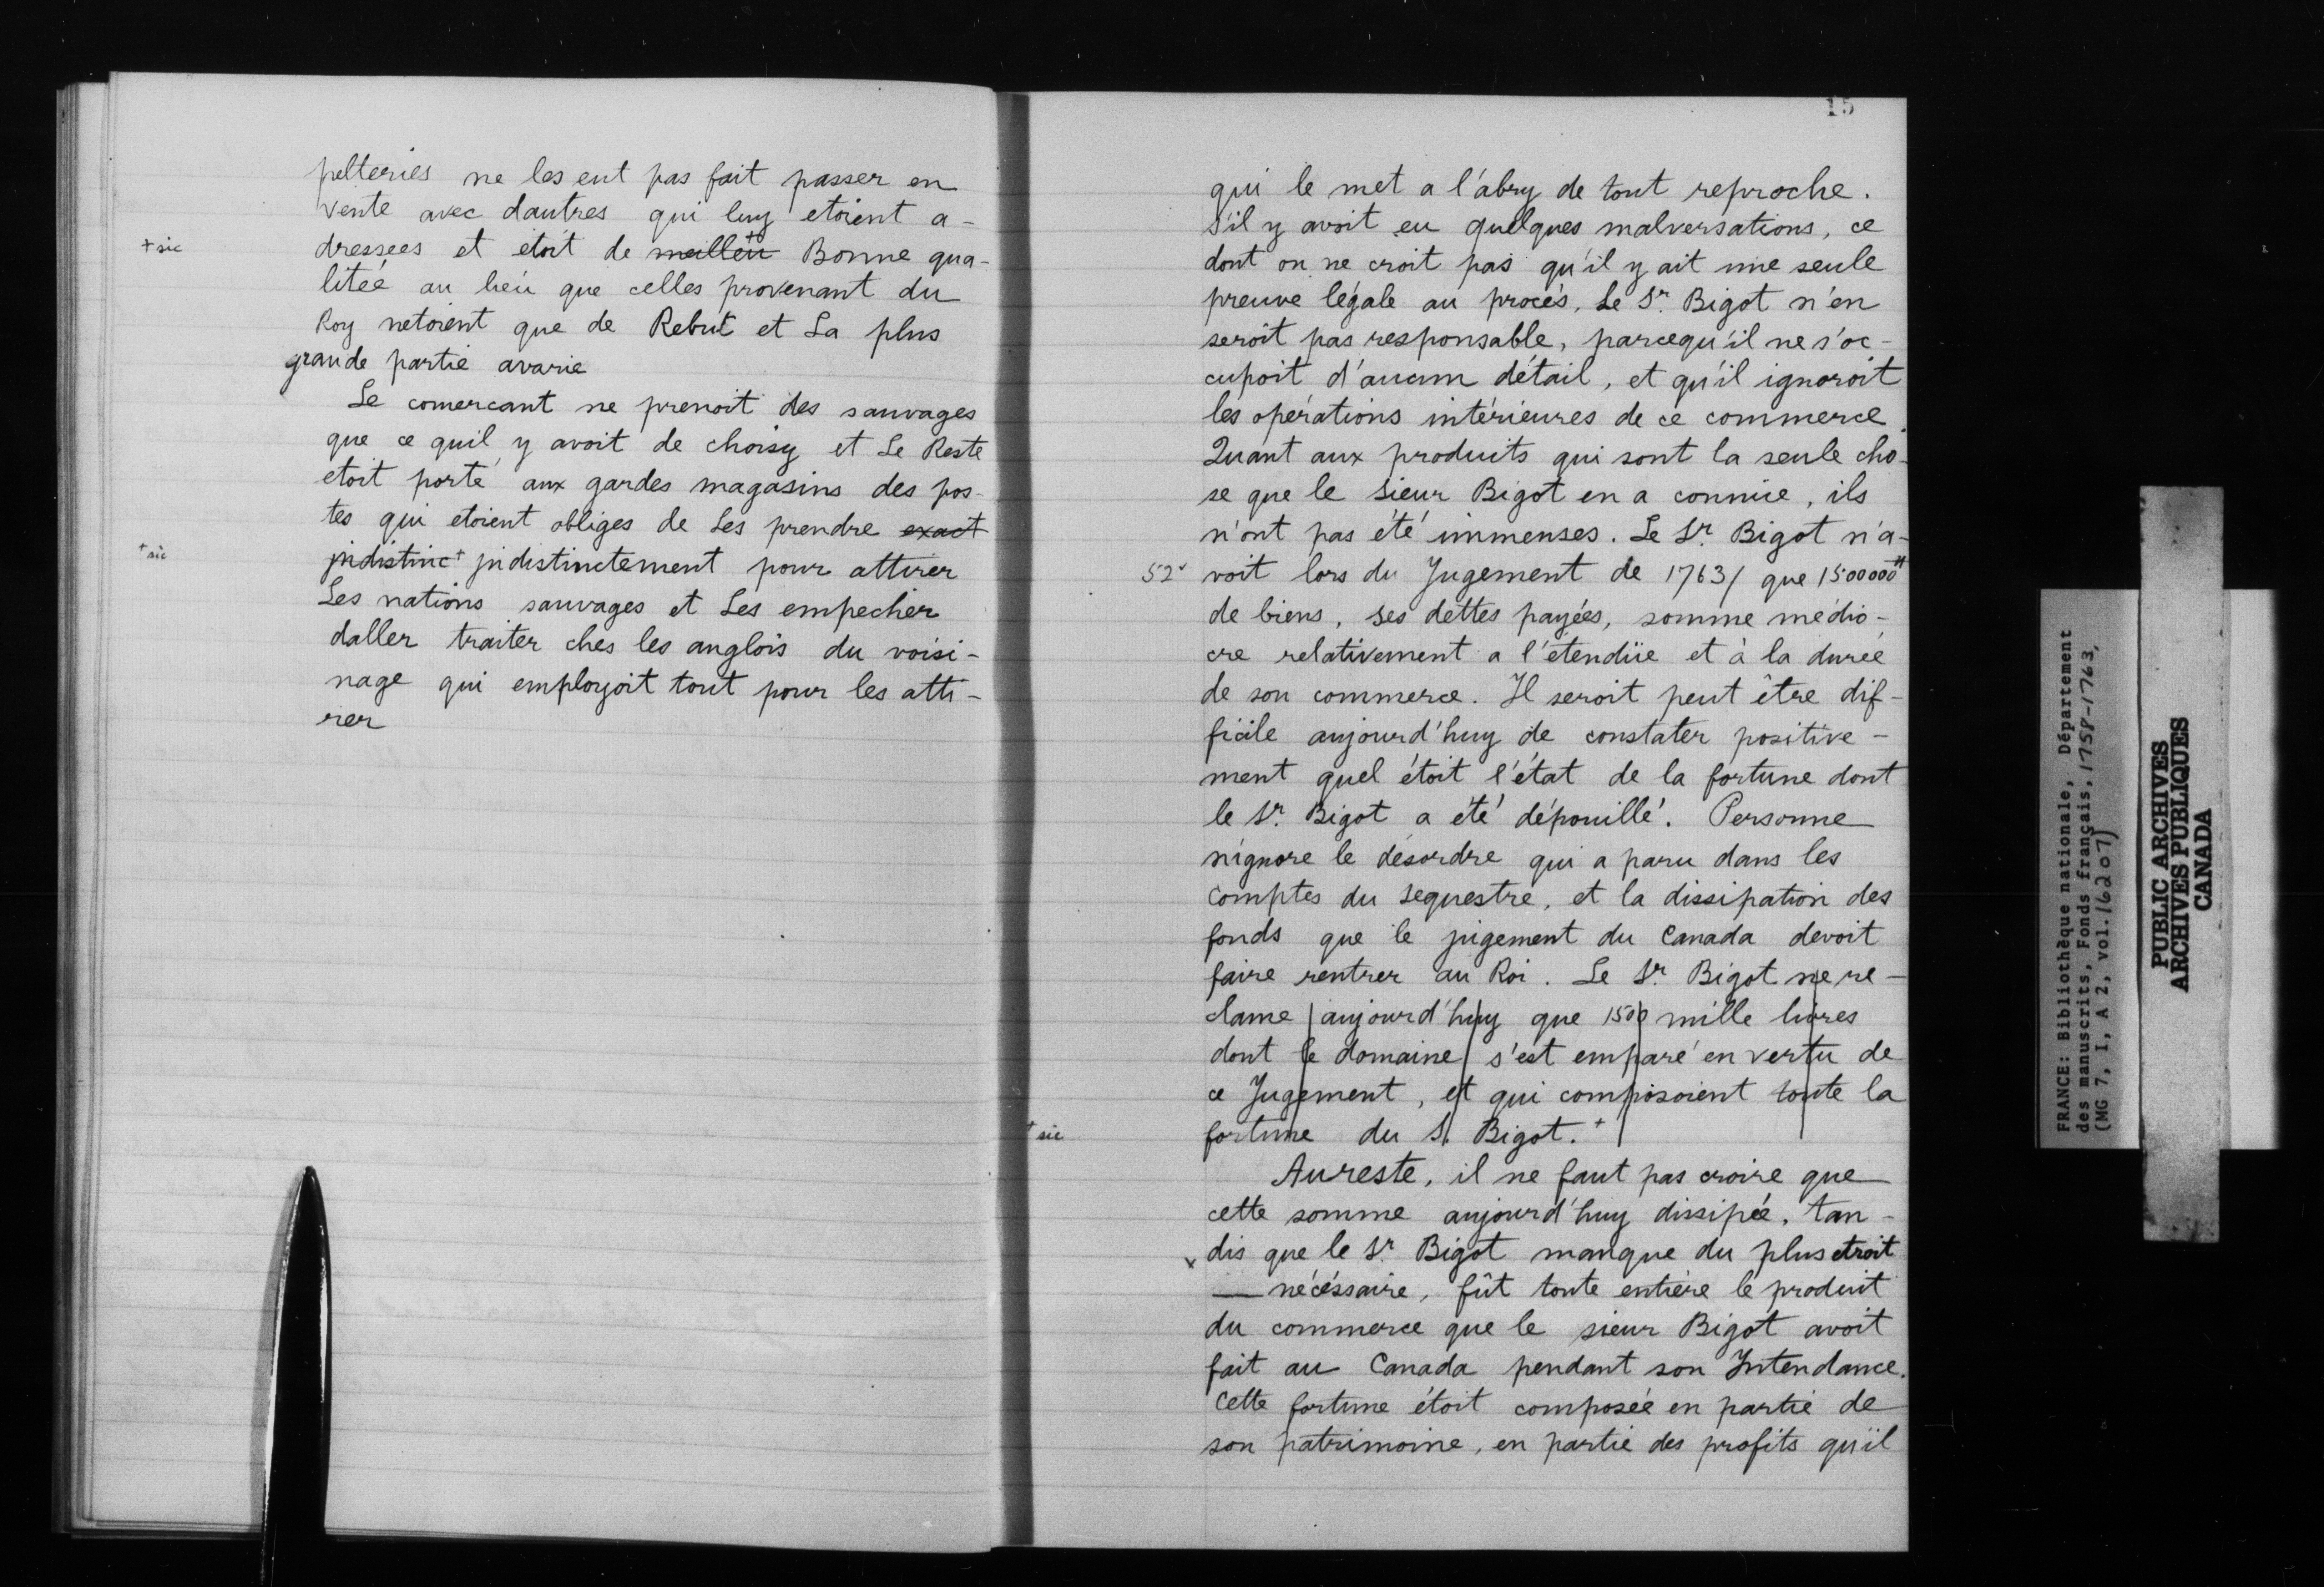 pelteries ne les eut pas fait passer en
vente avec dautres qui luy etoient a-
+ sic
dressees et etoit de meilleu+ Bonne qua-
litée au lieu que celles provenant du
Roy netoient que de Rebut et La plus
grande partie avarie
Le comercant ne prenoit des sauvages
que ce quil y avoit de choisy et Le Reste
etoit porté aux gardes magasins des pos-
tes qui etoient obliges de Les prendre exact
+ sic
jndistinc+ jndistinctement pour attirer
Les nations sauvages et Les empecher
daller traiter ches les anglois du voisi-
nage qui employoit tout pour les atti-
rer
15
qui le met a l'abry de tout reproche.
S'il y avoit eu quelques malversations, ce
dont on ne croit pas qu'il y ait une seule
preuve légale au procés, Le Sr. Bigot n'en
seroit pas responsable, parcequ'il ne s'oc-
cupoit d'aucun détail, et qu'il ignoroit
les opérations intérieures de ce commerce.
Quant aux produits qui sont la seule cho-
se que le Sieur Bigot en a connüe, ils
n'ont pas été immenses. Le Sr. Bigot n'a-
52v
voit lors du Jugement de 1763/ que 1500000#
de biens, ses dettes payées, somme médio-
cre relativement a l'étendüe et à la durée
de son commerce. Il seroit peut être dif-
ficile aujourd'huy de constater positive-
ment quel étoit l'état de la fortune dont
le Sr. Bigot a été dépouillé. Personne
n'ignore le désordre qui a paru dans les
Comptes du Sequestre, et la dissipation des
fonds que le jugement du Canada devoit
faire rentrer au Roi. Le Sr. Bigot ne re-
clame aujourd'huy que 1500 mille livres
dont le domaine s'est emparé en vertu de
ce Jugement, et qui composoient toute la
+ sic
fortune du S. Bigot.+
Aureste, il ne faut pas croire que
cette somme aujourd'huy dissipée, tan-
x dis que le Sr. Bigot manque du plus etroit
— nécéssaire, fût toute entière le produit
du commerce que le sieur Bigot avoit
fait au Canada pendant son Intendance.
Cette fortune étoit composée en partie de
son patrimoine, en partie des profits qu'il
FRANCE: Bibliothèque nationale, Département
des manuscrits, Fonds français, 1758-1763,
(MG 7, I, A 2, vol. 16207)
PUBLIC ARCHIVES
ARCHIVES PUBLIQUES
CANADA